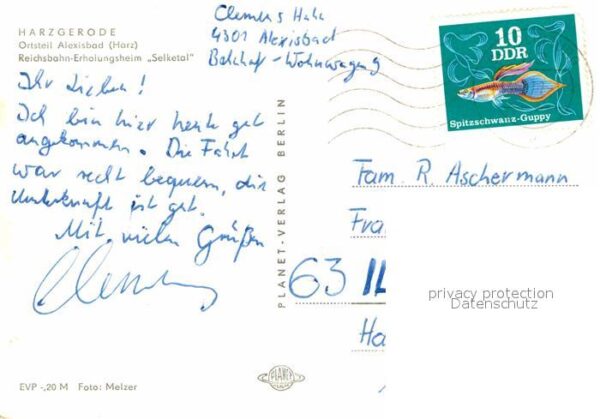 HARZGERODE
Ortsteil Alexisbad (Harz)
Reichsbahn-Erholungsheim „Selketal"
Clemens
4301 Alexisbad
Bahnhof - Wohnwagen 9
10
DDR
Spitzschwanz-Guppy
Ihr Lieben!
Ich bin hier heute gut
angekommen. Die Fahrt
war recht bequem, die
Unterkunft ist gut.
Mit vielen Grüßen
Clemens
PLANET-VERLAG BERLIN
Fam. R. Aschermann
Fra
63 Il
Ha
privacy protection
Datenschutz
PLANET
EVP -,20 M Foto: Melzer